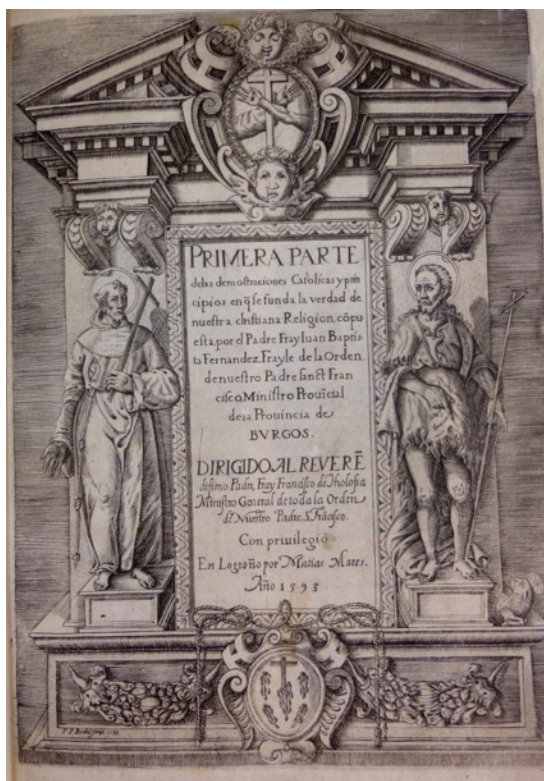 PRIMERA PARTE
delas demostraciones Catolicas y prin
cipios en q̃ se funda la verdad de
nuestra christiana Religion, cõpu
esta, por el Padre Fray Iuan Baptis-
ta Fernandez. Frayle de la Orden
de nuestro Padre sanct Fran
cisco, Ministro Prouĩcial
desta Prouincia de
BVRGOS.
DIRIGIDO AL REVERẼ
disimo Padre, Fray Francisco de Tholosa
Ministro General de toda la Orden
de Nuestro Padre. S. Frãcisco.
Con priuilegio
En Logroño por Matias Mares.
Año 1593